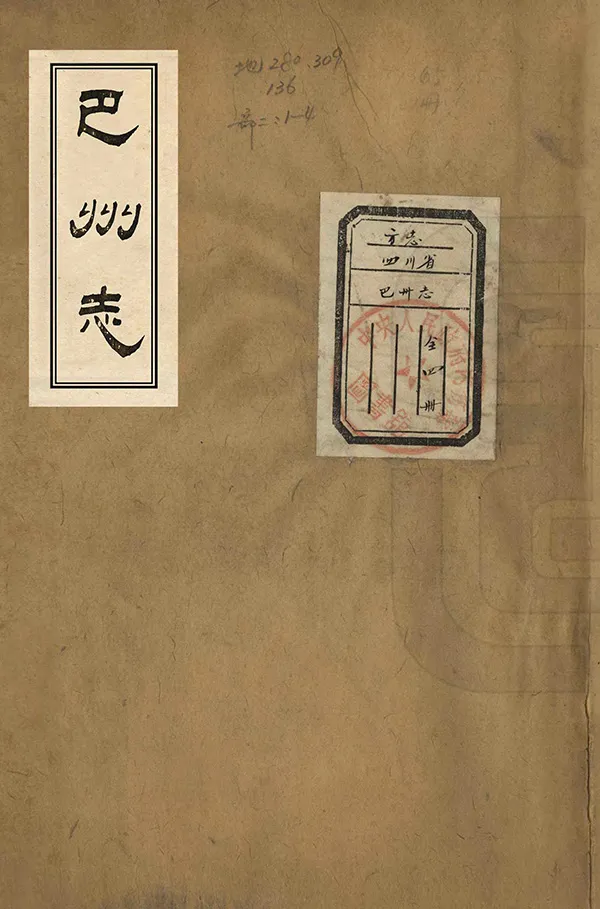 巴州志
地280.309
136
部二:1-4
方志
四川省
巴州志
全四册